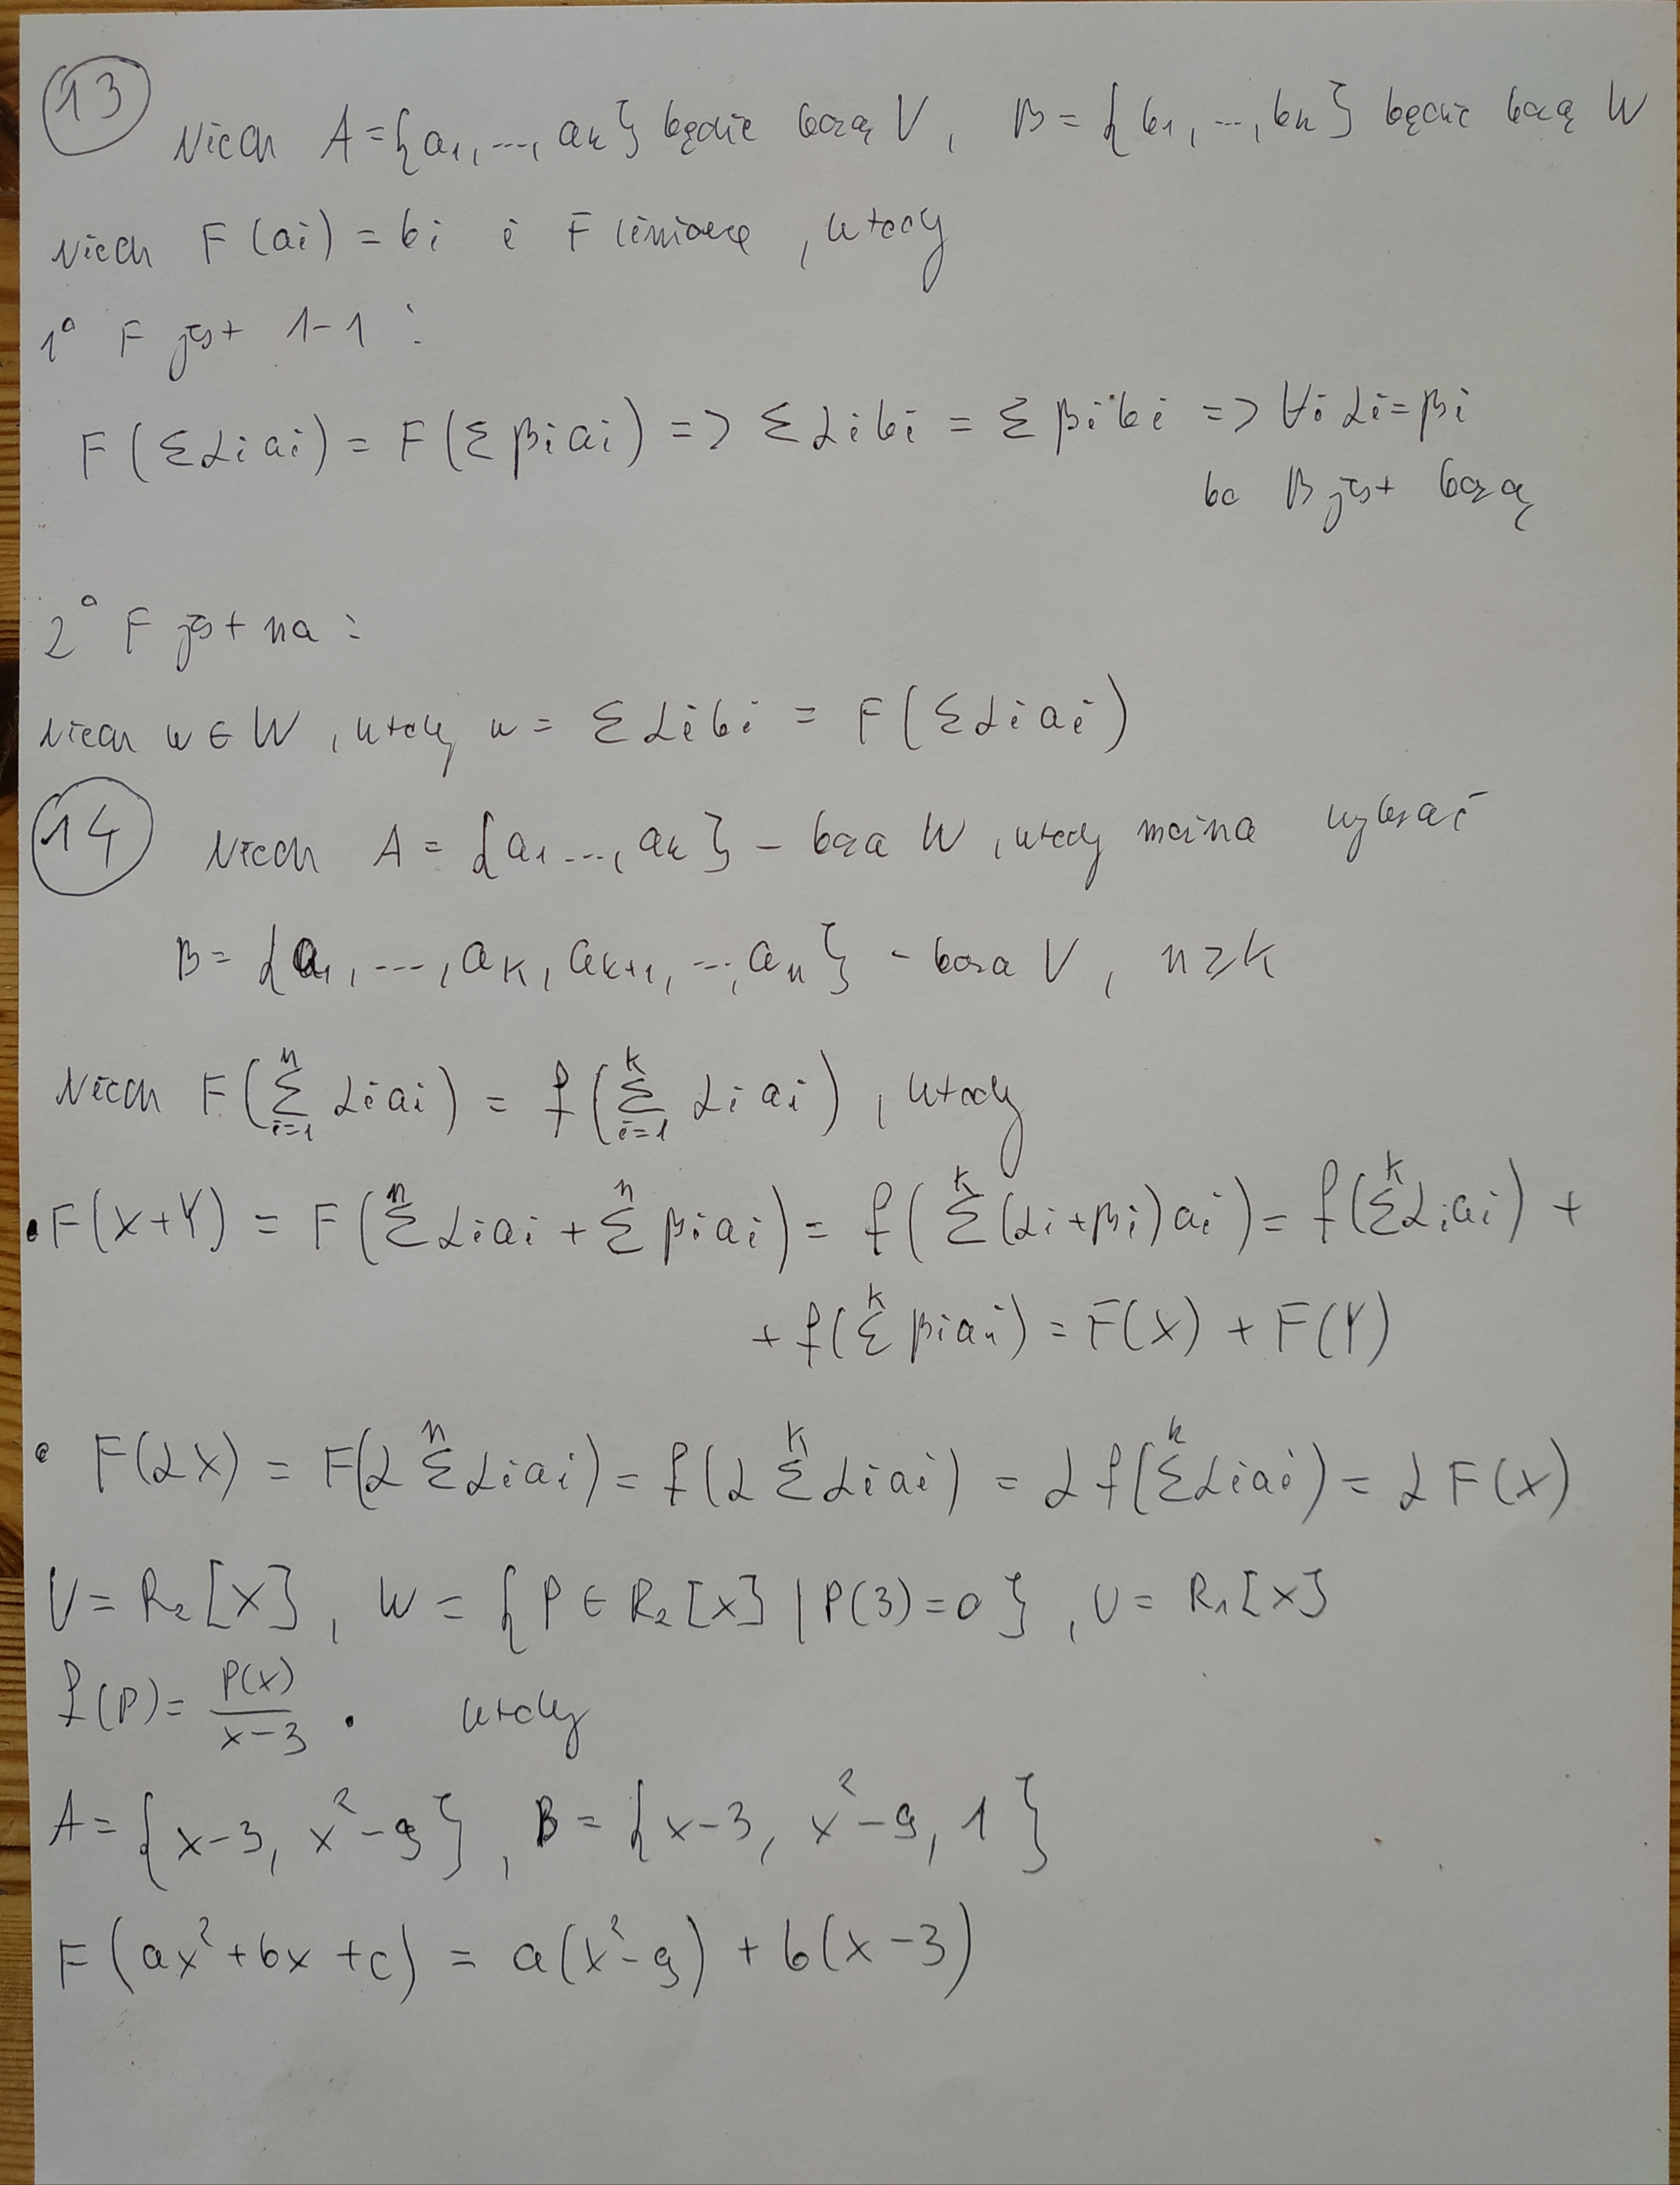 13
Niech A = {a₁, ..., aₙ} będzie bazą V, B = {b₁, ..., bₙ} będzie bazą W
Niech F(aᵢ) = bᵢ i F liniowe, wtedy
1° F jest 1-1 :
F(Σαᵢaᵢ) = F(Σβᵢaᵢ) => Σαᵢbᵢ = Σβᵢbᵢ => ∀i αᵢ=βᵢ
bo B jest bazą
2° F jest na :
Niech w ∈ W, wtedy w = Σαᵢbᵢ = F(Σαᵢaᵢ)
14
Niech A = {a₁ ..., aₖ} - baza W, wtedy można wybrać
B = {a₁, ..., aₖ, aₖ₊₁, ..., aₙ} - baza V, n ≥ k
Niech F(Σᵢ₌₁ⁿ αᵢaᵢ) = f(Σᵢ₌₁ᵏ αᵢaᵢ), wtedy
• F(X+Y) = F(Σⁿ αᵢaᵢ + Σⁿ βᵢaᵢ) = f(Σᵏ(αᵢ+βᵢ)aᵢ) = f(Σᵏαᵢaᵢ) +
+ f(Σᵏ βᵢaᵢ) = F(X) + F(Y)
• F(αX) = F(αΣⁿαᵢaᵢ) = f(αΣᵏαᵢaᵢ) = αf(Σᵏαᵢaᵢ) = αF(X)
V = R₂[X], W = {P ∈ R₂[X] | P(3)=0}, U = R₁[X]
f(P) = P(X)/(x-3) . wtedy
A = {x-3, x²-9}, B = {x-3, x²-9, 1}
F(ax²+bx+c) = a(x²-9) + b(x-3)